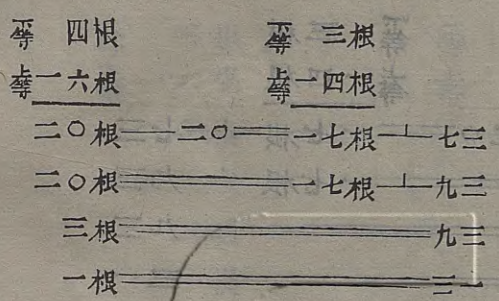 下等 四根 下等 三根
上等 一六根 上等 一四根
二〇根—二〇＝一七根⊥七三
二〇根＝一七根⊥九三
三根＝九三
一根＝三一